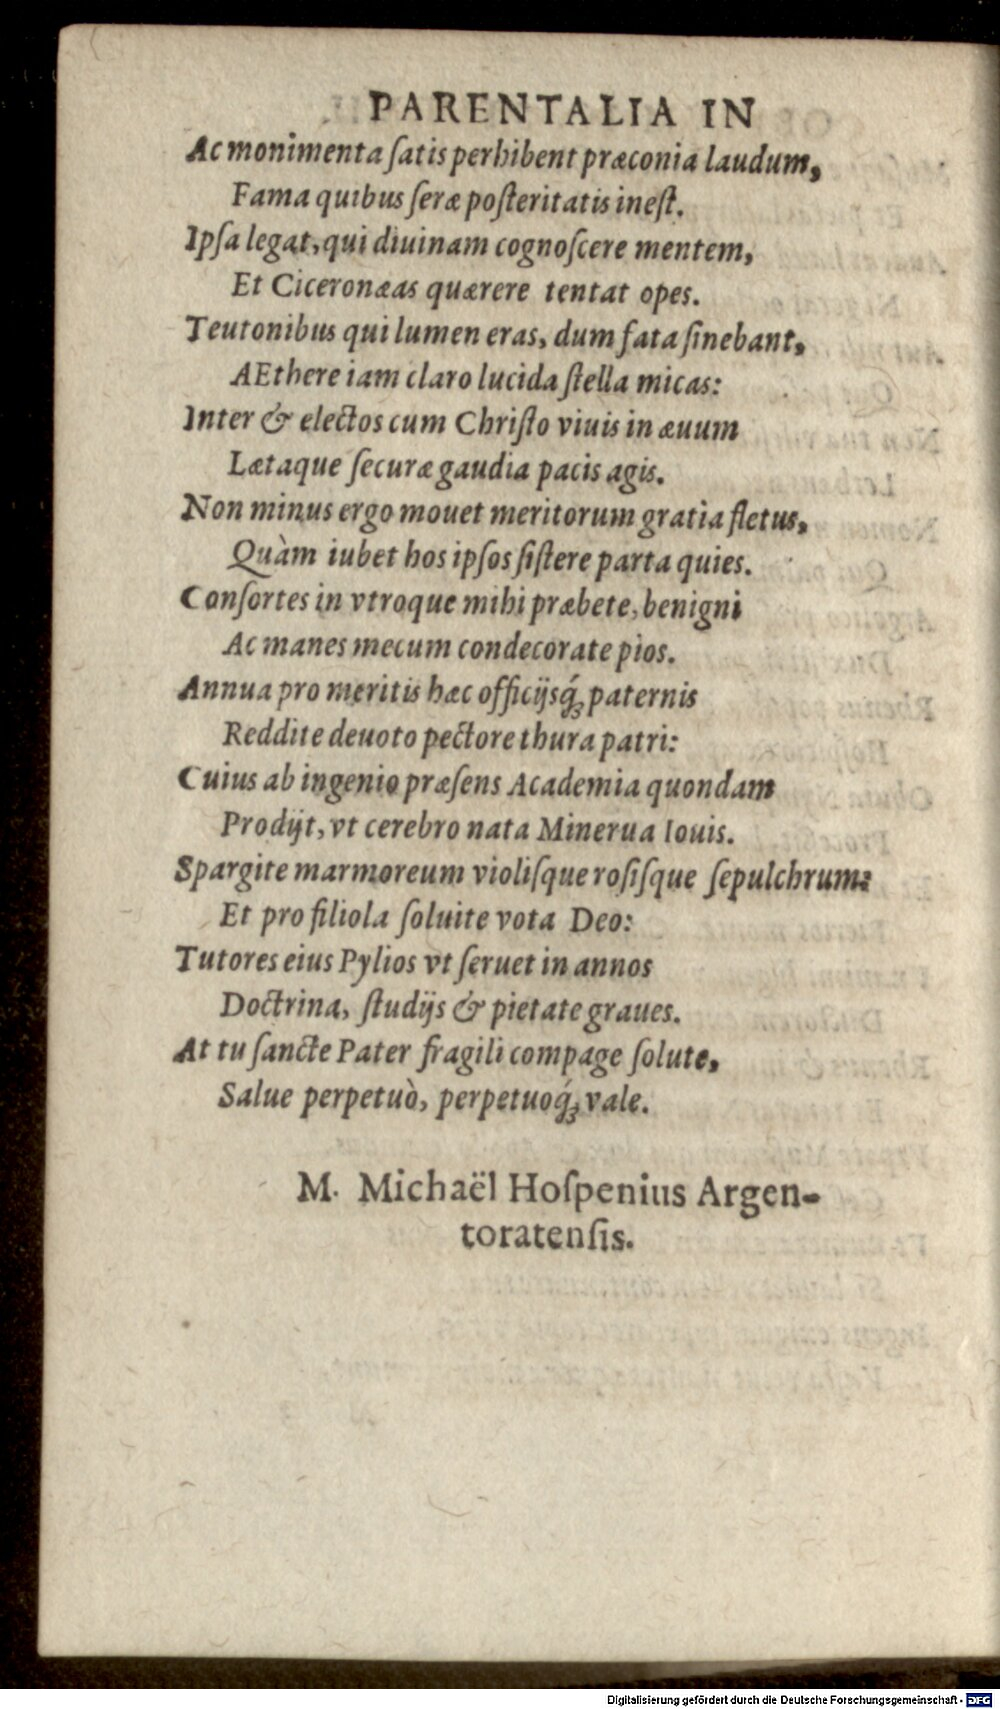 PARENTALIA IN
Ac monimenta ſatis perhibent præconia laudum,
Fama quibus ſeræ poſteritatis ineſt.
Ipſa legat, qui diuinam cognoſcere mentem,
Et Ciceronæas quærere tentat opes.
Teutonibus qui lumen eras, dum fata ſinebant,
AEthere iam claro lucida ſtella micas:
Inter & electos cum Chriſto viuis in æuum
Lætaque ſecuræ gaudia pacis agis.
Non minus ergo mouet meritorum gratia fletus,
Quàm iubet hos ipſos ſiſtere parta quies.
Conſortes in vtroque mihi præbete, benigni
Ac manes mecum condecorate pios.
Annua pro meritis hæc officijsq́ꝫ paternis
Reddite deuoto pectore thura patri:
Cuius ab ingenio præſens Academia quondam
Prodijt, vt cerebro nata Minerua Iouis.
Spargite marmoreum violiſque roſiſque ſepulchrum:
Et pro filiola ſoluite vota Deo:
Tutores eius Pylios vt ſeruet in annos
Doctrina, ſtudijs & pietate graues.
At tu ſancte Pater fragili compage ſolute,
Salue perpetuò, perpetuoq́ꝫ vale.
M. Michaël Hoſpenius Argen-
toratenſis.
Digitalisierung gefördert durch die Deutsche Forschungsgemeinschaft - DFG